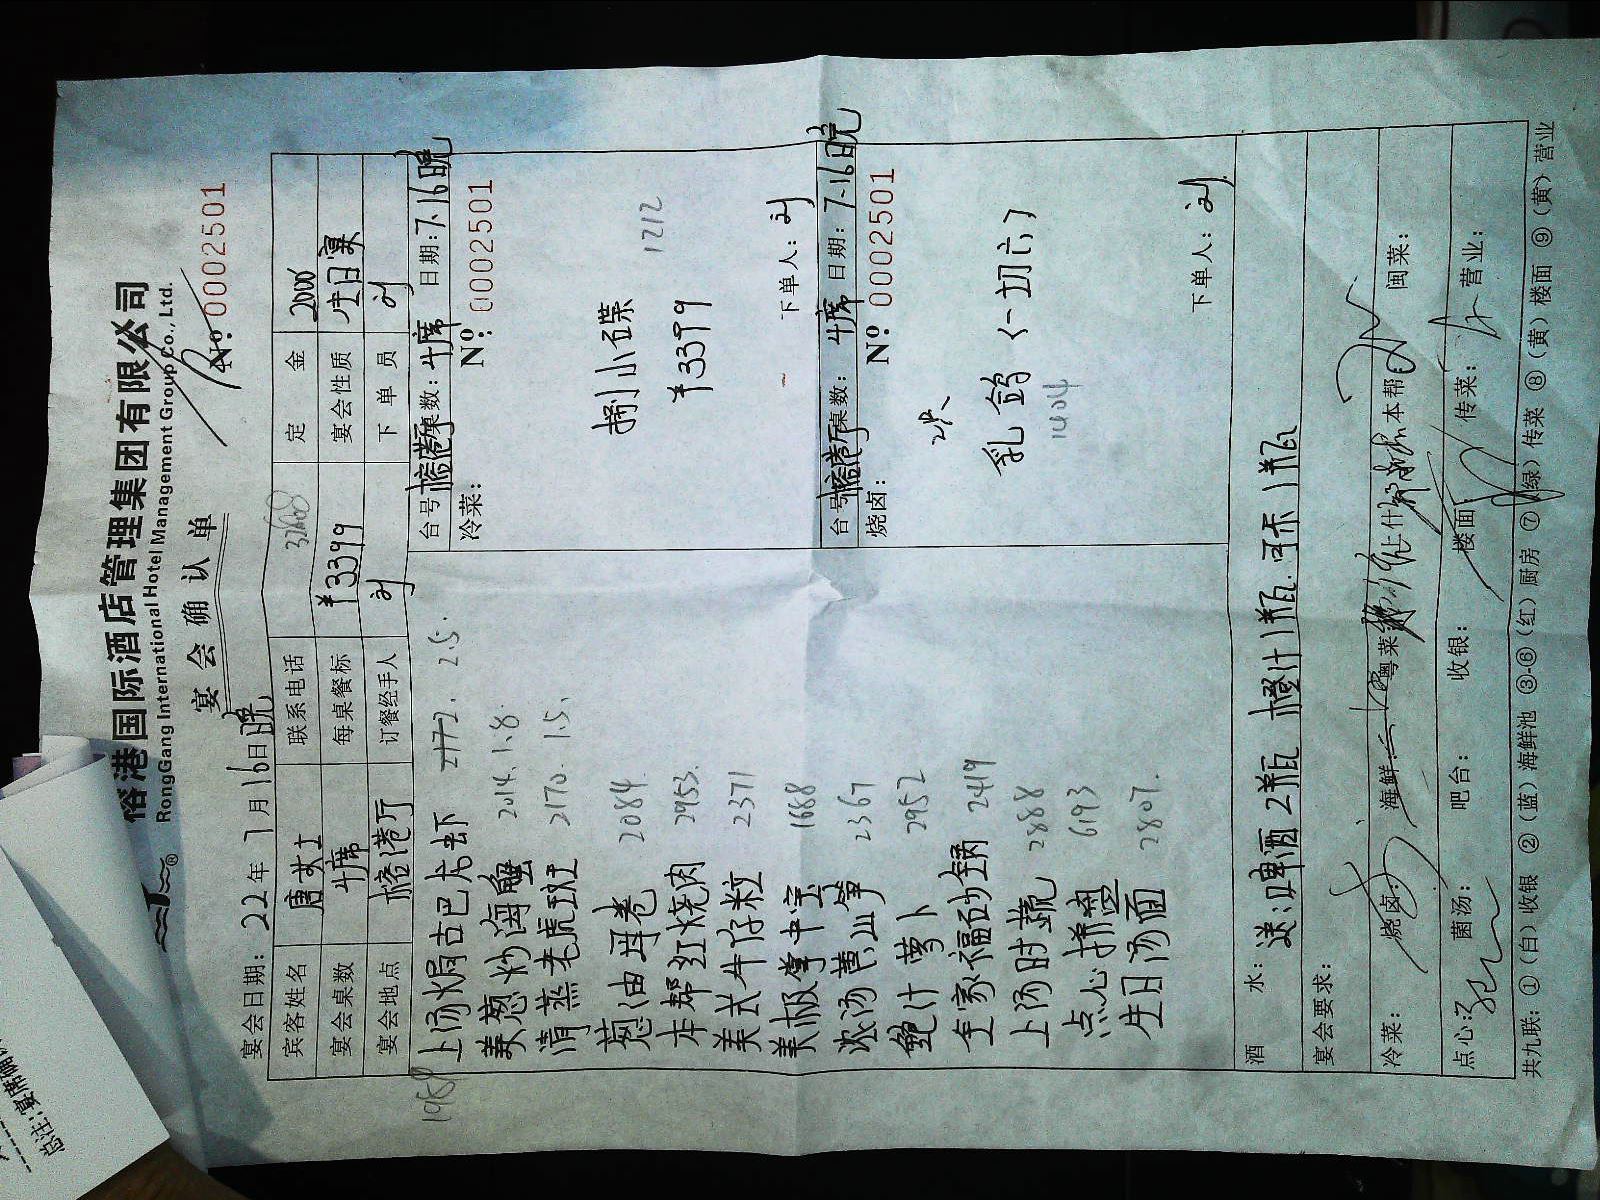 榕港国际酒店管理集团有限公司
RongGang International Hotel Management Group Co., Ltd.
宴会确认单
№: 0002501
宴会日期: 22年7月16日晚
宾客姓名 唐女士 联系电话 定金 2000
宴会桌数 4席 每桌餐标 ¥3399 宴会性质 生日宴
宴会地点 榕港厅 订餐经手人 刘 下单员 刘
1958 上汤焗古巴龙虾 2172. 2.5.
姜葱炒海蟹 2014. 1.8.
清蒸老虎斑 2170. 1.5.
葱油耳卷 2084
本帮红烧肉 2953.
美式牛仔粒 2371
美极掌中宝 1688
浓汤黄山笋 2367
鲍汁萝卜 2952
全家福砂锅 2419
上汤时蔬 2888
点心拼盘 6193
生日汤面 2807.
台号 榕港厅 桌数: 4席 日期: 7.16晚
冷菜: №: 0002501
捌小碟 1212
¥3399
下单人: 刘
台号 榕港厅 桌数: 4席 日期: 7.16晚
烧卤: №: 0002501
乳鸽〈一切六〉
1404
下单人: 刘
酒水: 送:啤酒2瓶 橙汁1瓶.可乐1瓶
宴会要求:
冷菜: 烧卤: 海鲜: 粤菜: 上什 本帮 闽菜:
点心: 菌汤: 吧台: 收银: 楼面: 传菜: 营业:
共九联: ①(白)收银 ②(蓝)海鲜池 ③-⑥(红)厨房 ⑦(绿)传菜 ⑧(黄)楼面 ⑨(黄)营业
总注:宴席